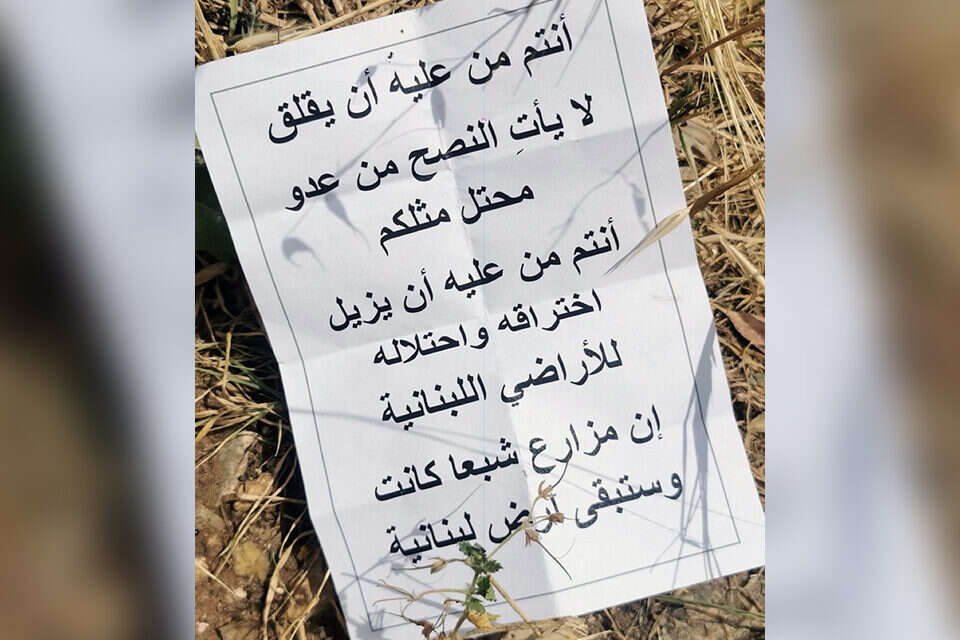 أنتم من عليه أن يقلق
لا يأتِ النصح من عدو
محتل مثلكم
أنتم من عليه أن يزيل
اختراقه واحتلاله
للأراضي اللبنانية
إن مزارع شبعا كانت
وستبقى أرض لبنانية